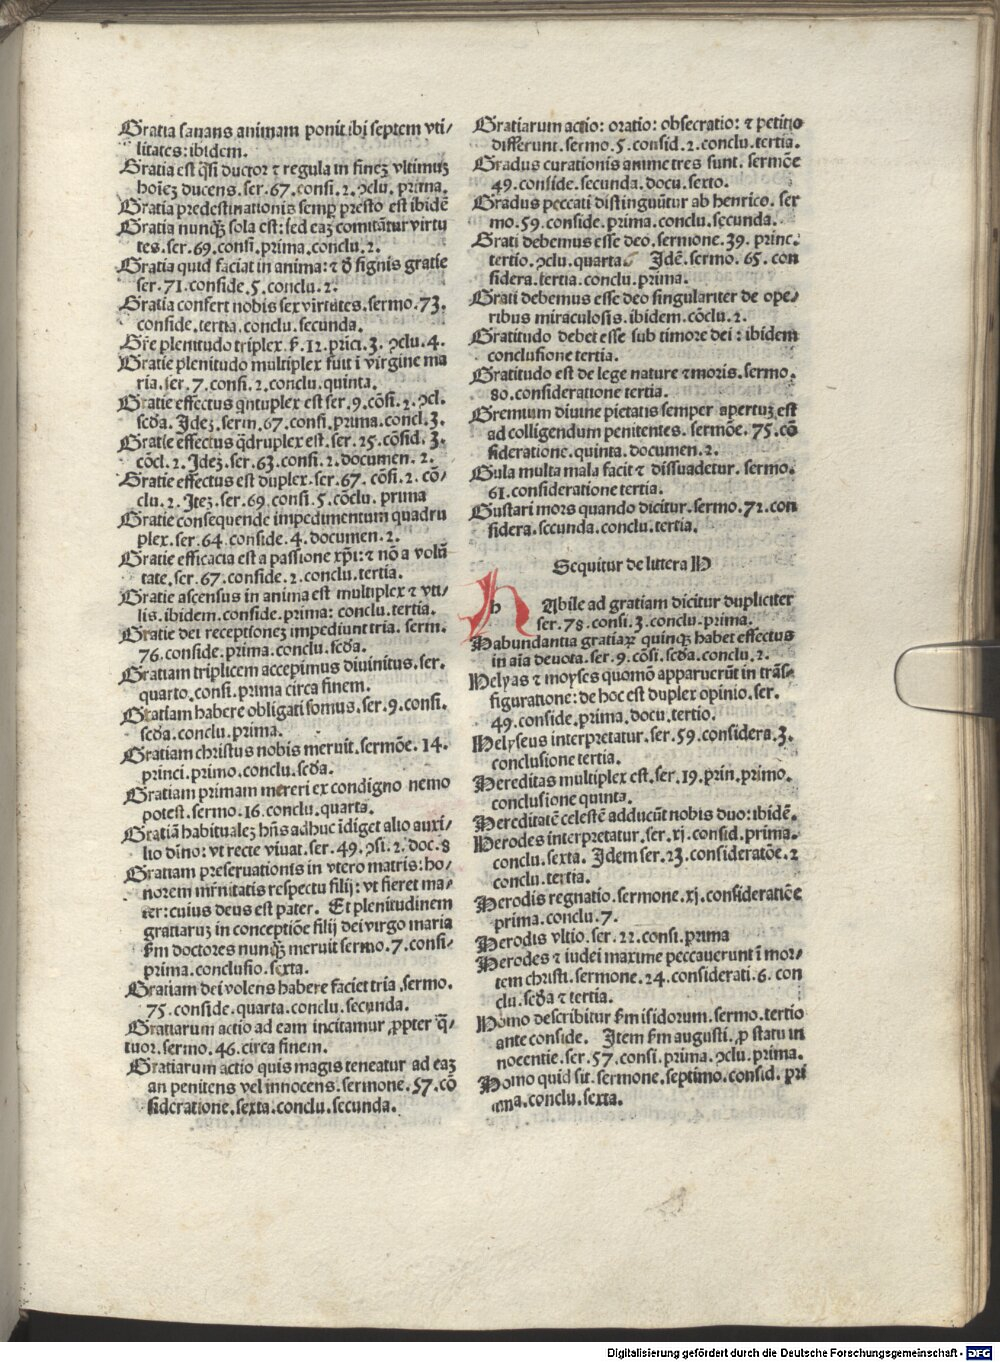 Gratia sanans animam ponit ibi septem vti/
litates: ibidem.
Gratia est q̃si ductor ⁊ regula in fineꝫ vltimuꝫ
hoieꝫ ducens. ser. 67. consi. 2. ꝯclu. prima.
Gratia predestinationis semꝑ presto est ibidē
Gratia nunqꝫ sola est: sed eaꝫ comitãtur virtu
tes. ser. 69. consi. prima. conclu. 2.
Gratia quid faciat in anima: ⁊ ð signis gratie
ser. 71. conside. 5. conclu. 2.
Gratia confert nobis sex virtutes. sermo. 73.
conside. tertia. conclu. secunda.
Gr̃e plenitudo triplex. ẜ. 12. prici. 3. ꝯclu. 4.
Gratie plenitudo multiplex fuit ī virgine ma
ria. ser. 7. consi. 2. conclu. quinta.
Gratie effectus qntuplex est ser. 9. cõsi. 2. ꝯcl.
scďa. Jdeꝫ. serm. 67. consi. prima. concl. 3.
Gratie effectus q̃druplex est. ser. 25. cõsid. 3.
cõcl. 2. Jdeꝫ. ser. 63. consi. 2. documen. 2.
Gratie effectus est duplex. ser. 67. cõsi. 2. cõ/
clu. 2. Jteꝫ. ser. 69. consi. 5. cõclu. prima
Gratie consequende impedimentum quadru
plex. ser. 64. conside. 4. documen. 2.
Gratie efficacia est a passione xp̃i: ⁊ nõ a volũ
tate. ser. 67. conside. 2. conclu. tertia.
Gratie ascensus in anima est multiplex ⁊ vti/
lis. ibidem. conside. prima: conclu. tertia.
Gratie dei receptioneꝫ impediunt tria. serm.
76. conside. prima. conclu. scďa.
Gratiam triplicem accepimus diuinitus. ser.
quarto. consi. prima circa finem.
Gratiam habere obligati somus. ser. 9. consi.
scďa. conclu. prima.
Gratiam christus nobis meruit. sermõe. 14.
princi. primo. conclu. scďa.
Gratiam primam mereri ex condigno nemo
potest. sermo. 16. conclu. quarta.
Gratiã habitualeꝫ hñs adhuc īdiget alio auxi/
lio diño: vt recte viuat. ser. 49. ꝯsi. 2. doc. 8
Gratiam preseruationis in vtero matris: ho/
norem mr̃nitatis respectu filij: vt fieret ma/
ter: cuius deus est pater. Et plenitudinem
gratiaruꝫ in conceptiõe filij dei virgo maria
ẜm doctores nunqꝫ meruit sermo. 7. consi/
prima. conclusio. sexta.
Gratiam dei volens habere faciet tria. sermo.
75. conside. quarta. conclu. secunda.
Gratiarum actio ad eam incitamur ꝓpter q̃/
tuor. sermo. 46. circa finem.
Gratiarum actio quis magis teneatur ad eaꝫ
an penitens vel innocens. sermone. 57. cõ
sideratione. sexta. conclu. secunda.
Gratiarum actio: oratio: obsecratio: ⁊ petitio
differunt. sermo. 5. consid. 2. conclu. tertia.
Gradus curationis anime tres sunt. sermõe
49. conside. secunda. docu. sexto.
Gradus peccati distinguũtur ab henrico. ser
mo. 59. conside. prima. conclu. secunda.
Grati debemus esse deo. sermone. 39. princ.
tertio. ꝯclu. quarta. Jdē. sermo. 65. con
sidera. tertia. conclu. prima.
Grati debemus esse deo singulariter de ope/
ribus miraculosis. ibidem. cõclu. 2.
Gratitudo debet esse sub timore dei: ibidem
conclusione tertia.
Gratitudo est de lege nature ⁊ moris. sermo.
80. consideratione tertia.
Gremium diuine pietatis semper apertuꝫ est
ad colligendum penitentes. sermõe. 75. cõ
sideratione. quinta. documen. 2.
Gula multa mala facit ⁊ dissuadetur. sermo.
61. consideratione tertia.
Gustari mors quando dicitur. sermo. 72. con
sidera. secunda. conclu. tertia.
Sequitur de littera H
h Abile ad gratiam dicitur dupliciter
ser. 78. consi. 3. conclu. prima.
Habundantia gratiaꝝ quinqꝫ habet effectus
in aĩa deuota. ser. 9. cõsi. scďa. conclu. 2.
Helyas ⁊ moyses quomõ apparuerũt in trãs/
figuratione: de hoc est duplex opinio. ser.
49. conside. prima. docu. tertio.
Helyseus interpretatur. ser. 59. considera. 3.
conclusione tertia.
Hereditas multiplex est. ser. 19. prin. primo.
conclusione quinta.
Hereditatē celestē adducũt nobis duo: ibidē.
Herodes interpretatur. ser. xj. consid. prima.
conclu. sexta. Jdem ser. 23. consideratõe. 2
conclu. tertia.
Herodis regnatio. sermone. xj. consideratiõe
prima. conclu. 7.
Herodis vltio. ser. 22. consi. prima
Herodes ⁊ iudei maxime peccauerunt ī mor/
tem christi. sermone. 24. considerati. 6. con
clu. scďa ⁊ tertia.
Homo describitur ẜm isidorum. sermo. tertio
ante conside. Jtem ẜm augusti. ꝓ statu in
nocentie. ser. 57. consi. prima. ꝯclu. prima.
Homo quid sit. sermone. septimo. consid. pri
ma. conclu. sexta.
Digitalisierung gefördert durch die Deutsche Forschungsgemeinschaft - DFG